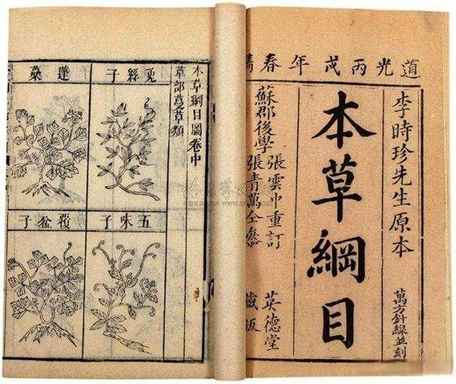 道光丙戌年春
李時珍先生原本
萬方針線並刻
本草綱目
蘇郡後學
張雲中重訂
張青萬仝參
英德堂
藏板
本草綱目圖卷中
草部蔓草類
兎絲子
五味子
蓬
覆盆子